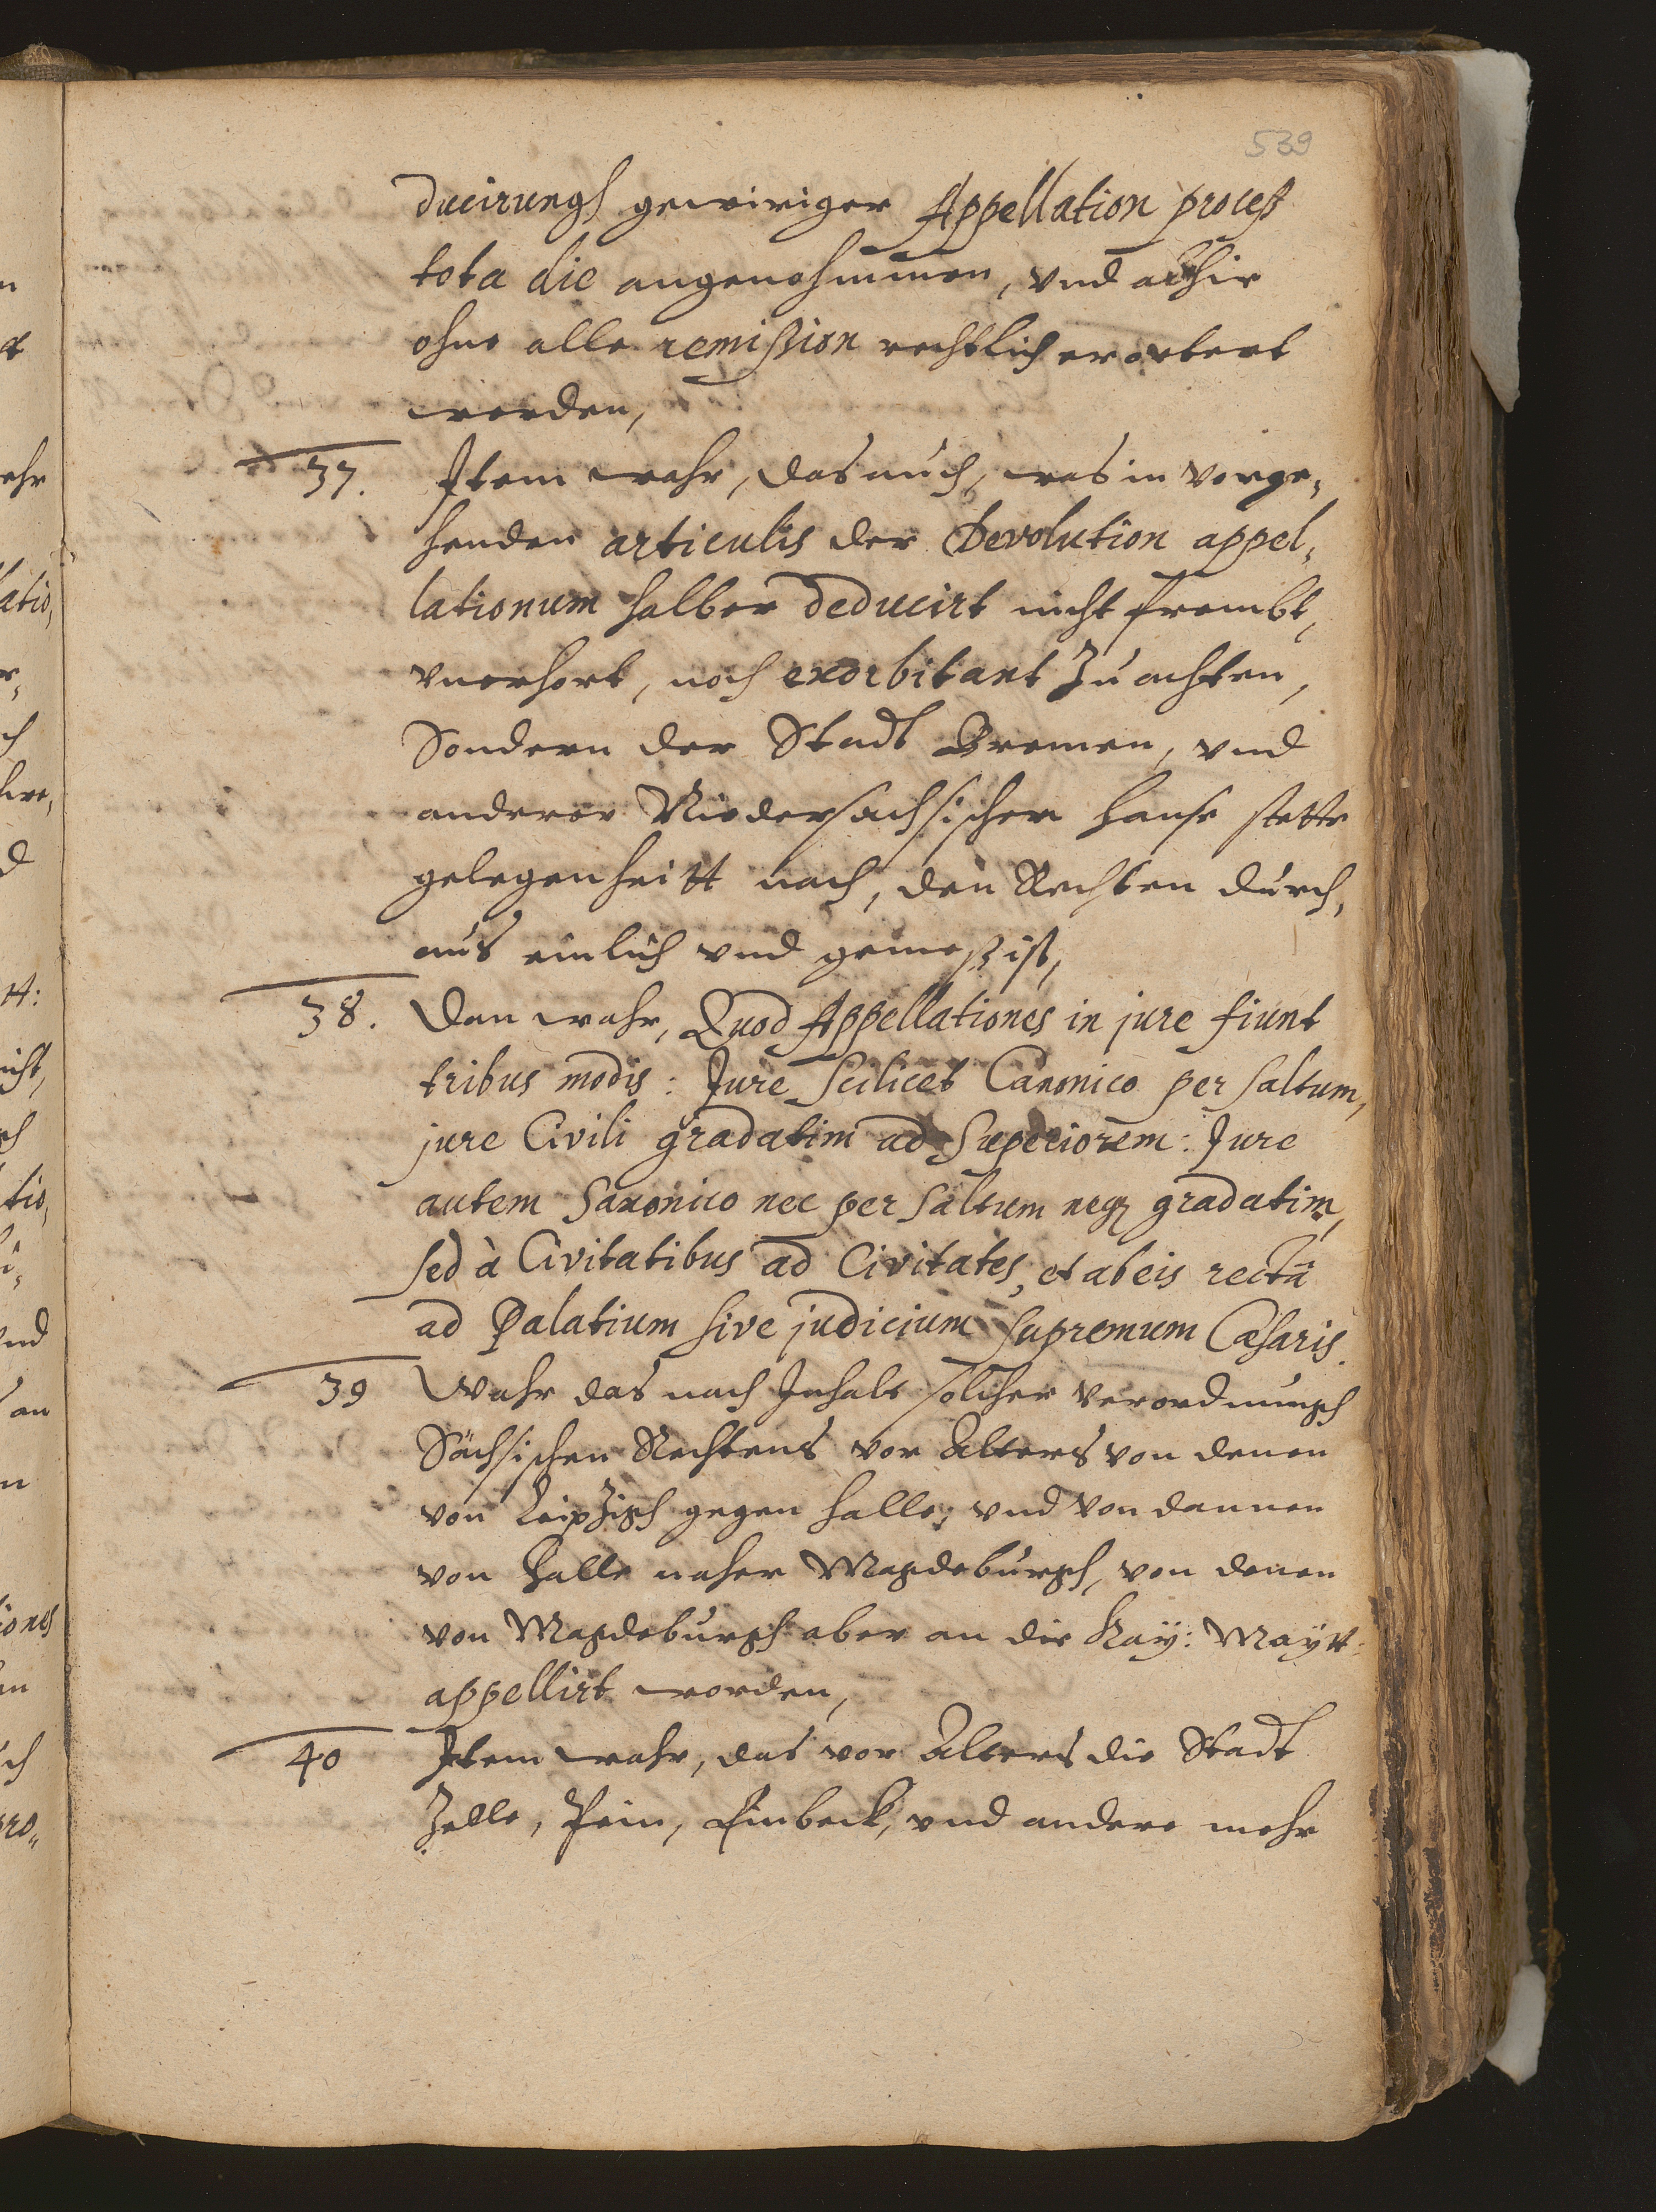 539
ducirungh gewiriger Appellation proceß
tota die angenohmmen, vnd alhir
ohne alle remißion rechtlich erortert
worden,
37. Item wahr, das auch, was in vorge¬
henden articulis der Devolution appel¬
lationum halber deducirt nicht frembt,
vnerhort, noch exorbitant zu achten,
Sondern der Stadt Bremen, vnd
anderer Niedersachsischer Hanse stette
gelegenheitt nach, den Rechten durch¬
aus einlich vnd gemeß ist,
38. Dan wahr, Quod Appellationes in jure fiunt
tribus modis: Jure scilicet Canonico per saltum,
jure Civili gradatim ad Superiorem: Jure
autem Saxonico nec per saltum neq3 gradatim,
sed à Civitatibus ad Civitates, et ab eis rectâ
ad Palatium sive judicium supremum Cæsaris.
39 Wahr das nach Inhalt solcher verordnungh
Sächsischen Rechtens vor Alters von denen
von Leipzigh gegen Halle, vnd von dannen
von Halle naher Magdeburgh, von denen
von Magdeburgh aber an die Kay: Maytt:
appellirt worden,
40 Item wahr, das vor Alters die Stadt
Zelle, Pein, Einbeck, vnd andere mehr